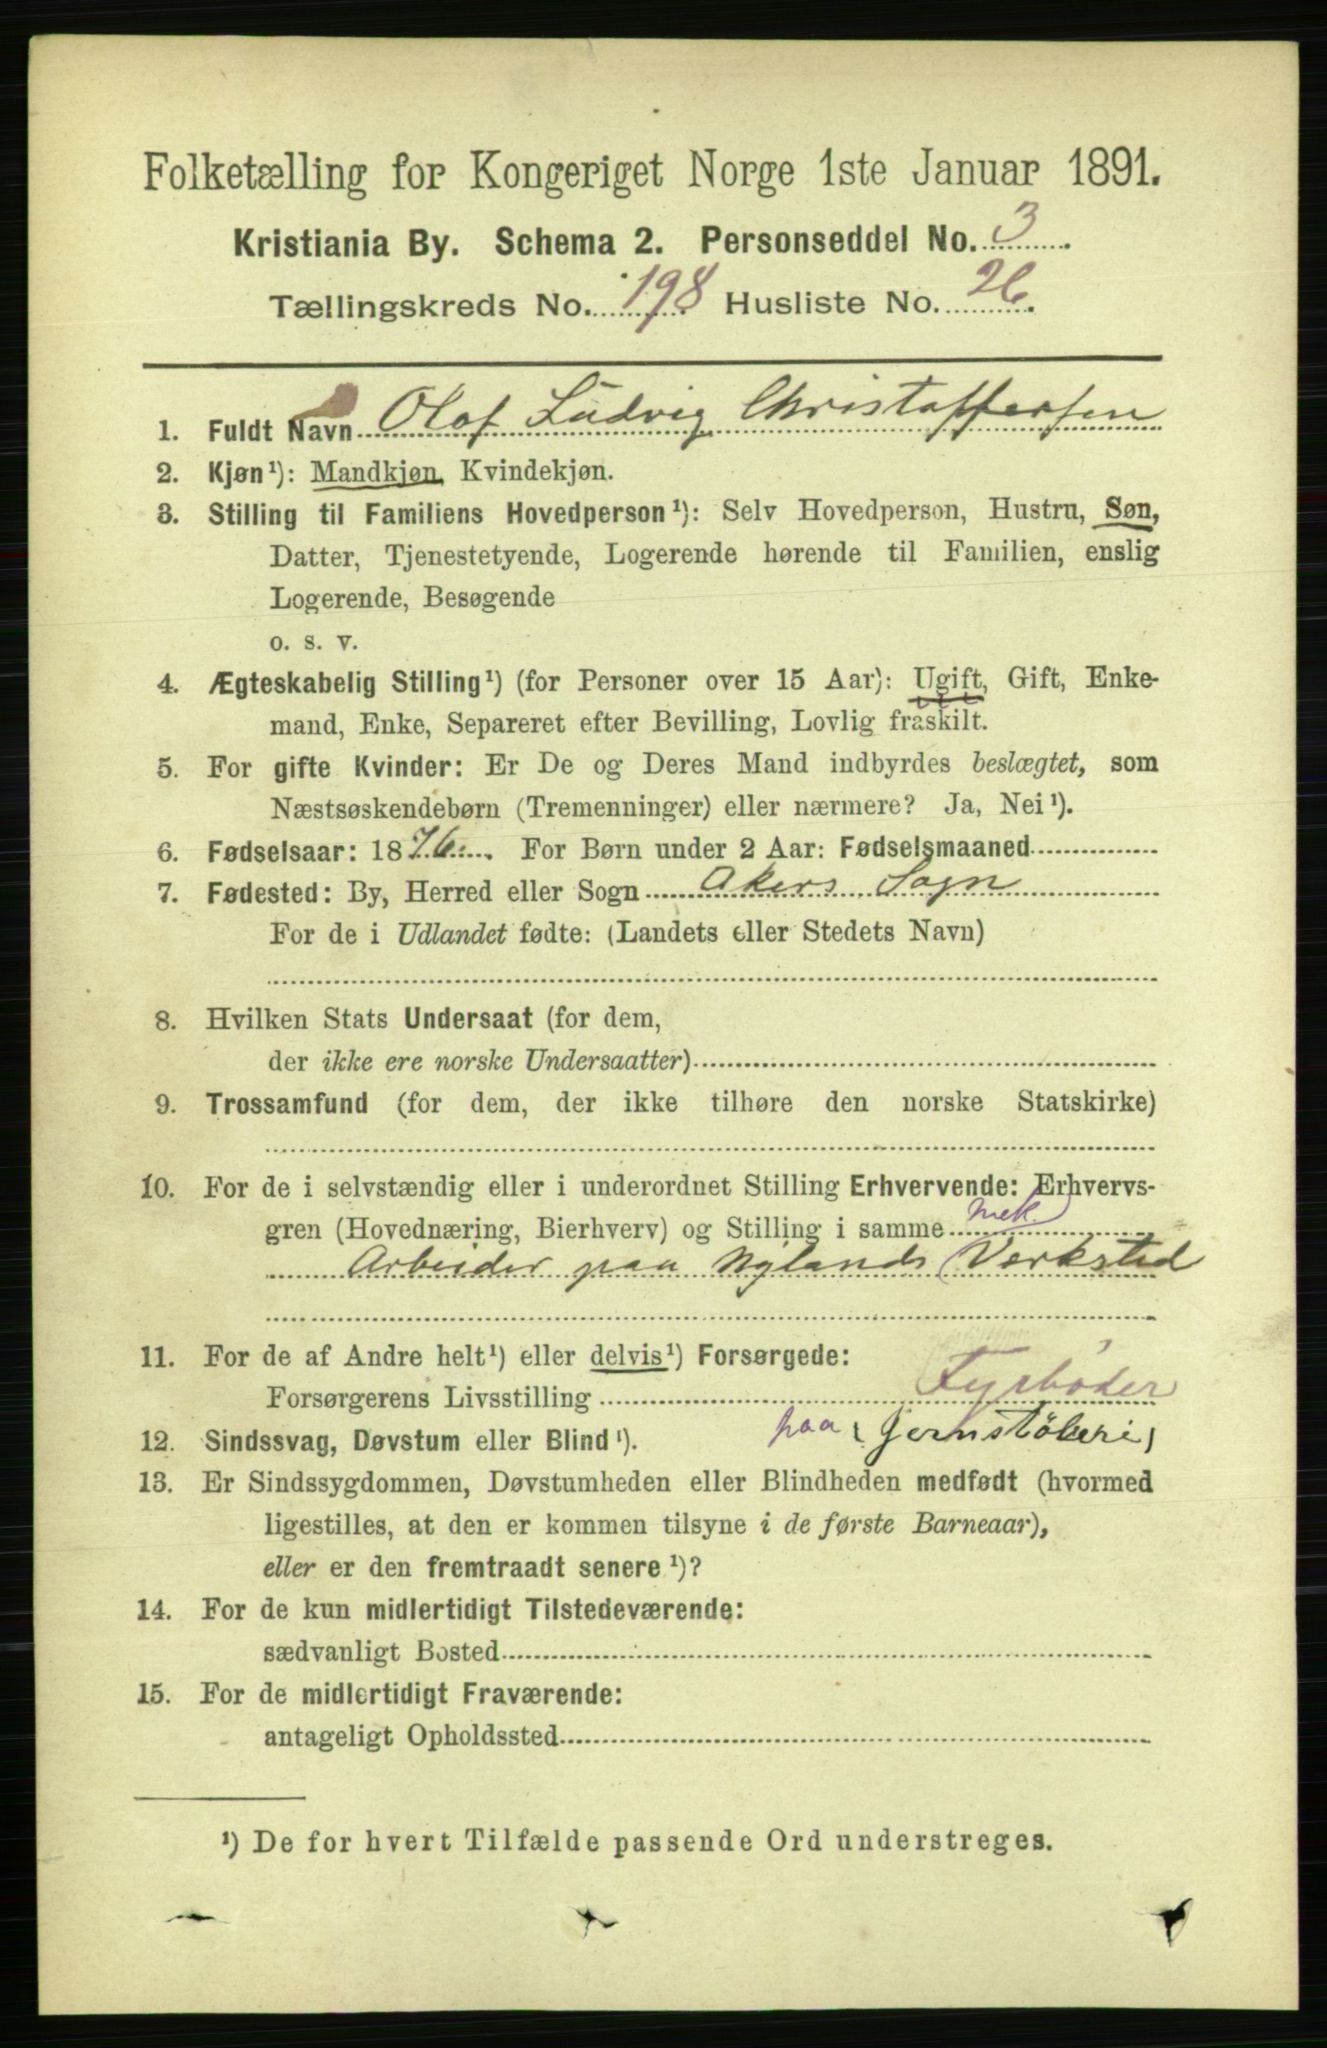 Folketælling for Kongeriget Norge 1ste Januar 1891.
Kristiania By. Schema 2. Personseddel No. 3
Tællingskreds No. 198 Husliste No. 26.
1. Fuldt Navn Olaf Ludvig Christoffersen
2. Kjøn¹): Mandkjøn, Kvindekjøn.
3. Stilling til Familiens Hovedperson¹): Selv Hovedperson, Hustru, Søn,
Datter, Tjenestetyende, Logerende hørende til Familien, enslig
Logerende, Besøgende
o. s. v.
4. Ægteskabelig Stilling¹) (for Personer over 15 Aar): Ugift, Gift, Enke-
mand, Enke, Separeret efter Bevilling, Lovlig fraskilt.
5. For gifte Kvinder: Er De og Deres Mand indbyrdes beslægtet, som
Næstsøskendebørn (Tremenninger) eller nærmere? Ja, Nei¹).
6. Fødselsaar: 1876. For Børn under 2 Aar: Fødselsmaaned
7. Fødested: By, Herred eller Sogn Akers Sogn
For de i Udlandet fødte: (Landets eller Stedets Navn)
8. Hvilken Stats Undersaat (for dem,
der ikke ere norske Undersaatter)
9. Trossamfund (for dem, der ikke tilhøre den norske Statskirke)
10. For de i selvstændig eller i underordnet Stilling Erhvervende: Erhvervs-
gren (Hovednæring, Bierhverv) og Stilling i samme mek.
Arbeider paa Nylands Værksted
11. For de af Andre helt¹) eller delvis¹) Forsørgede:
Forsørgerens Livsstilling Fyrbøder
12. Sindssvag, Døvstum eller Blind¹). paa (Jernstøberi)
13. Er Sindssygdommen, Døvstumheden eller Blindheden medfødt (hvormed
ligestilles, at den er kommen tilsyne i de første Barneaar),
eller er den fremtraadt senere¹)?
14. For de kun midlertidigt Tilstedeværende:
sædvanligt Bosted
15. For de midlertidigt Fraværende:
antageligt Opholdssted
¹) De for hvert Tilfælde passende Ord understreges.